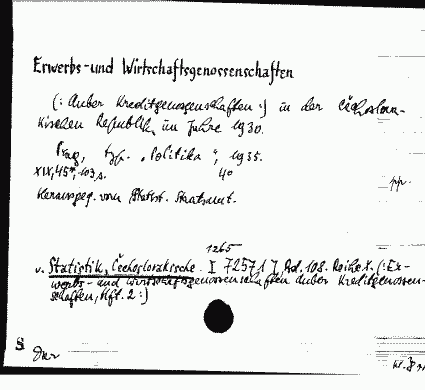 Erwerbs- und Wirtschaftsgenossenschaften
(: Außer Kreditgenossenschaften :) in der Čechoslova-
kischen Republik im Jahre 1930.
Prag, typ. "Politika", 1935.
XIX, 45*, 103 s. 4°
pp.
Herausgeg. vom Statist. Staatsamt.
1265
v. Statistik, Čechoslovakische. [72571], Bd. 108. Reihe X. (: Er-
werbs- und Wirtschaftsgenossenschaften außer Kreditgenossen-
schaften, Hft. 2 :)
S